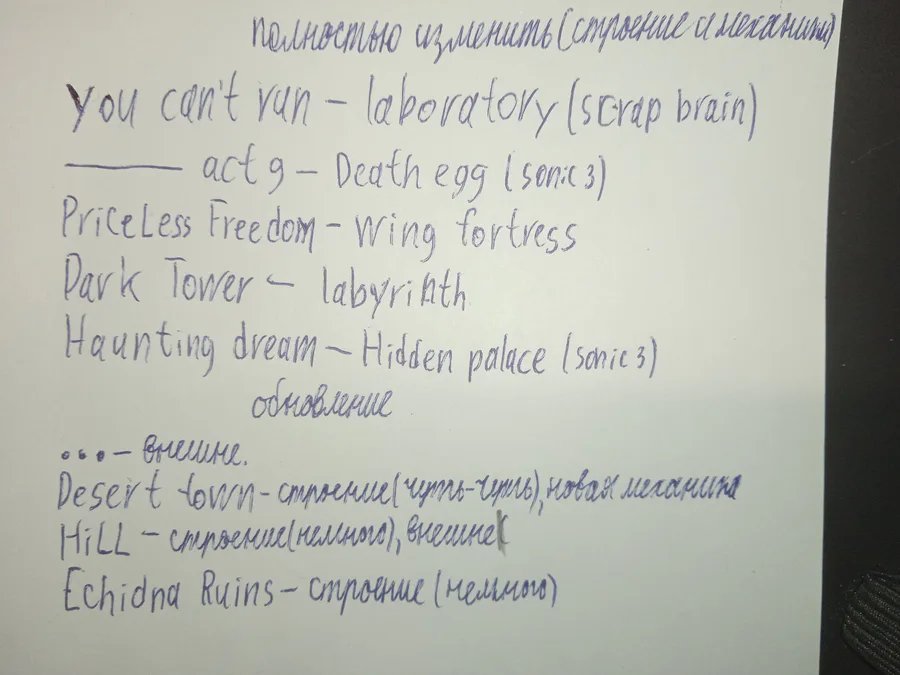 полностью изменить (строение и механики)
you can't run – laboratory (scrap brain)
——— act 9 – Death egg (sonic 3)
Priceless Freedom – wing fortress
Dark Tower – labyrinth
Haunting dream – Hidden palace (sonic 3)
обновление
... – внешне.
Desert town – строение (чуть-чуть), новая механика
Hill – строение (немного), внешне
Echidna Ruins – строение (немного)